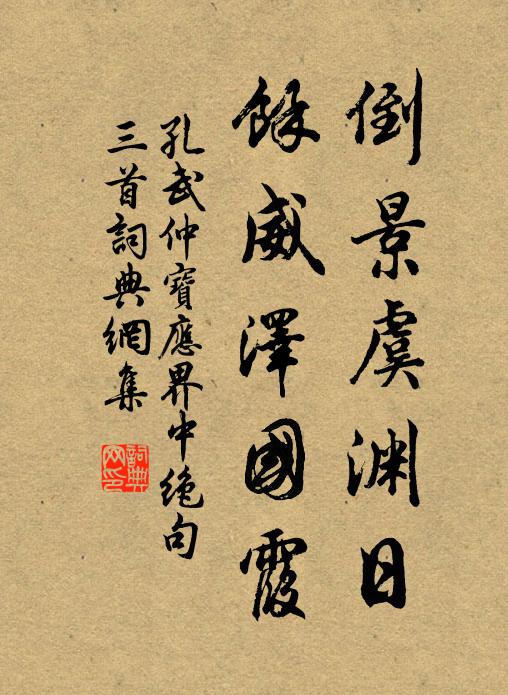 倒景虞淵日
餘威澤國霞
孔武仲寶應界中絕句
三首詞典網集
詞典
网印